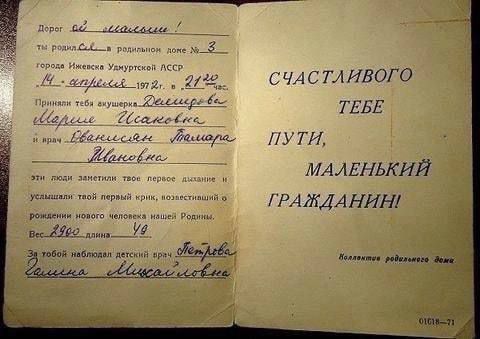 Дорогой малыш!
ты родился в родильном доме № 3
города Ижевска Удмуртской АССР
"14" апреля 1972г. в 21 20 час.
Приняли тебя акушерка Демидова
Мария Исаковна
и врач Еванисян Тамара
Ивановна
эти люди заметили твое первое дыхание и
услышали твой первый крик, возвестивший о
рождении нового человека нашей Родины.
Вес 2900 длина 49
За тобой наблюдал детский врач Петрова
Галина Михайловна
СЧАСТЛИВОГО
ТЕБЕ
ПУТИ,
МАЛЕНЬКИЙ
ГРАЖДАНИН!
Коллектив родильного дома
01618—71